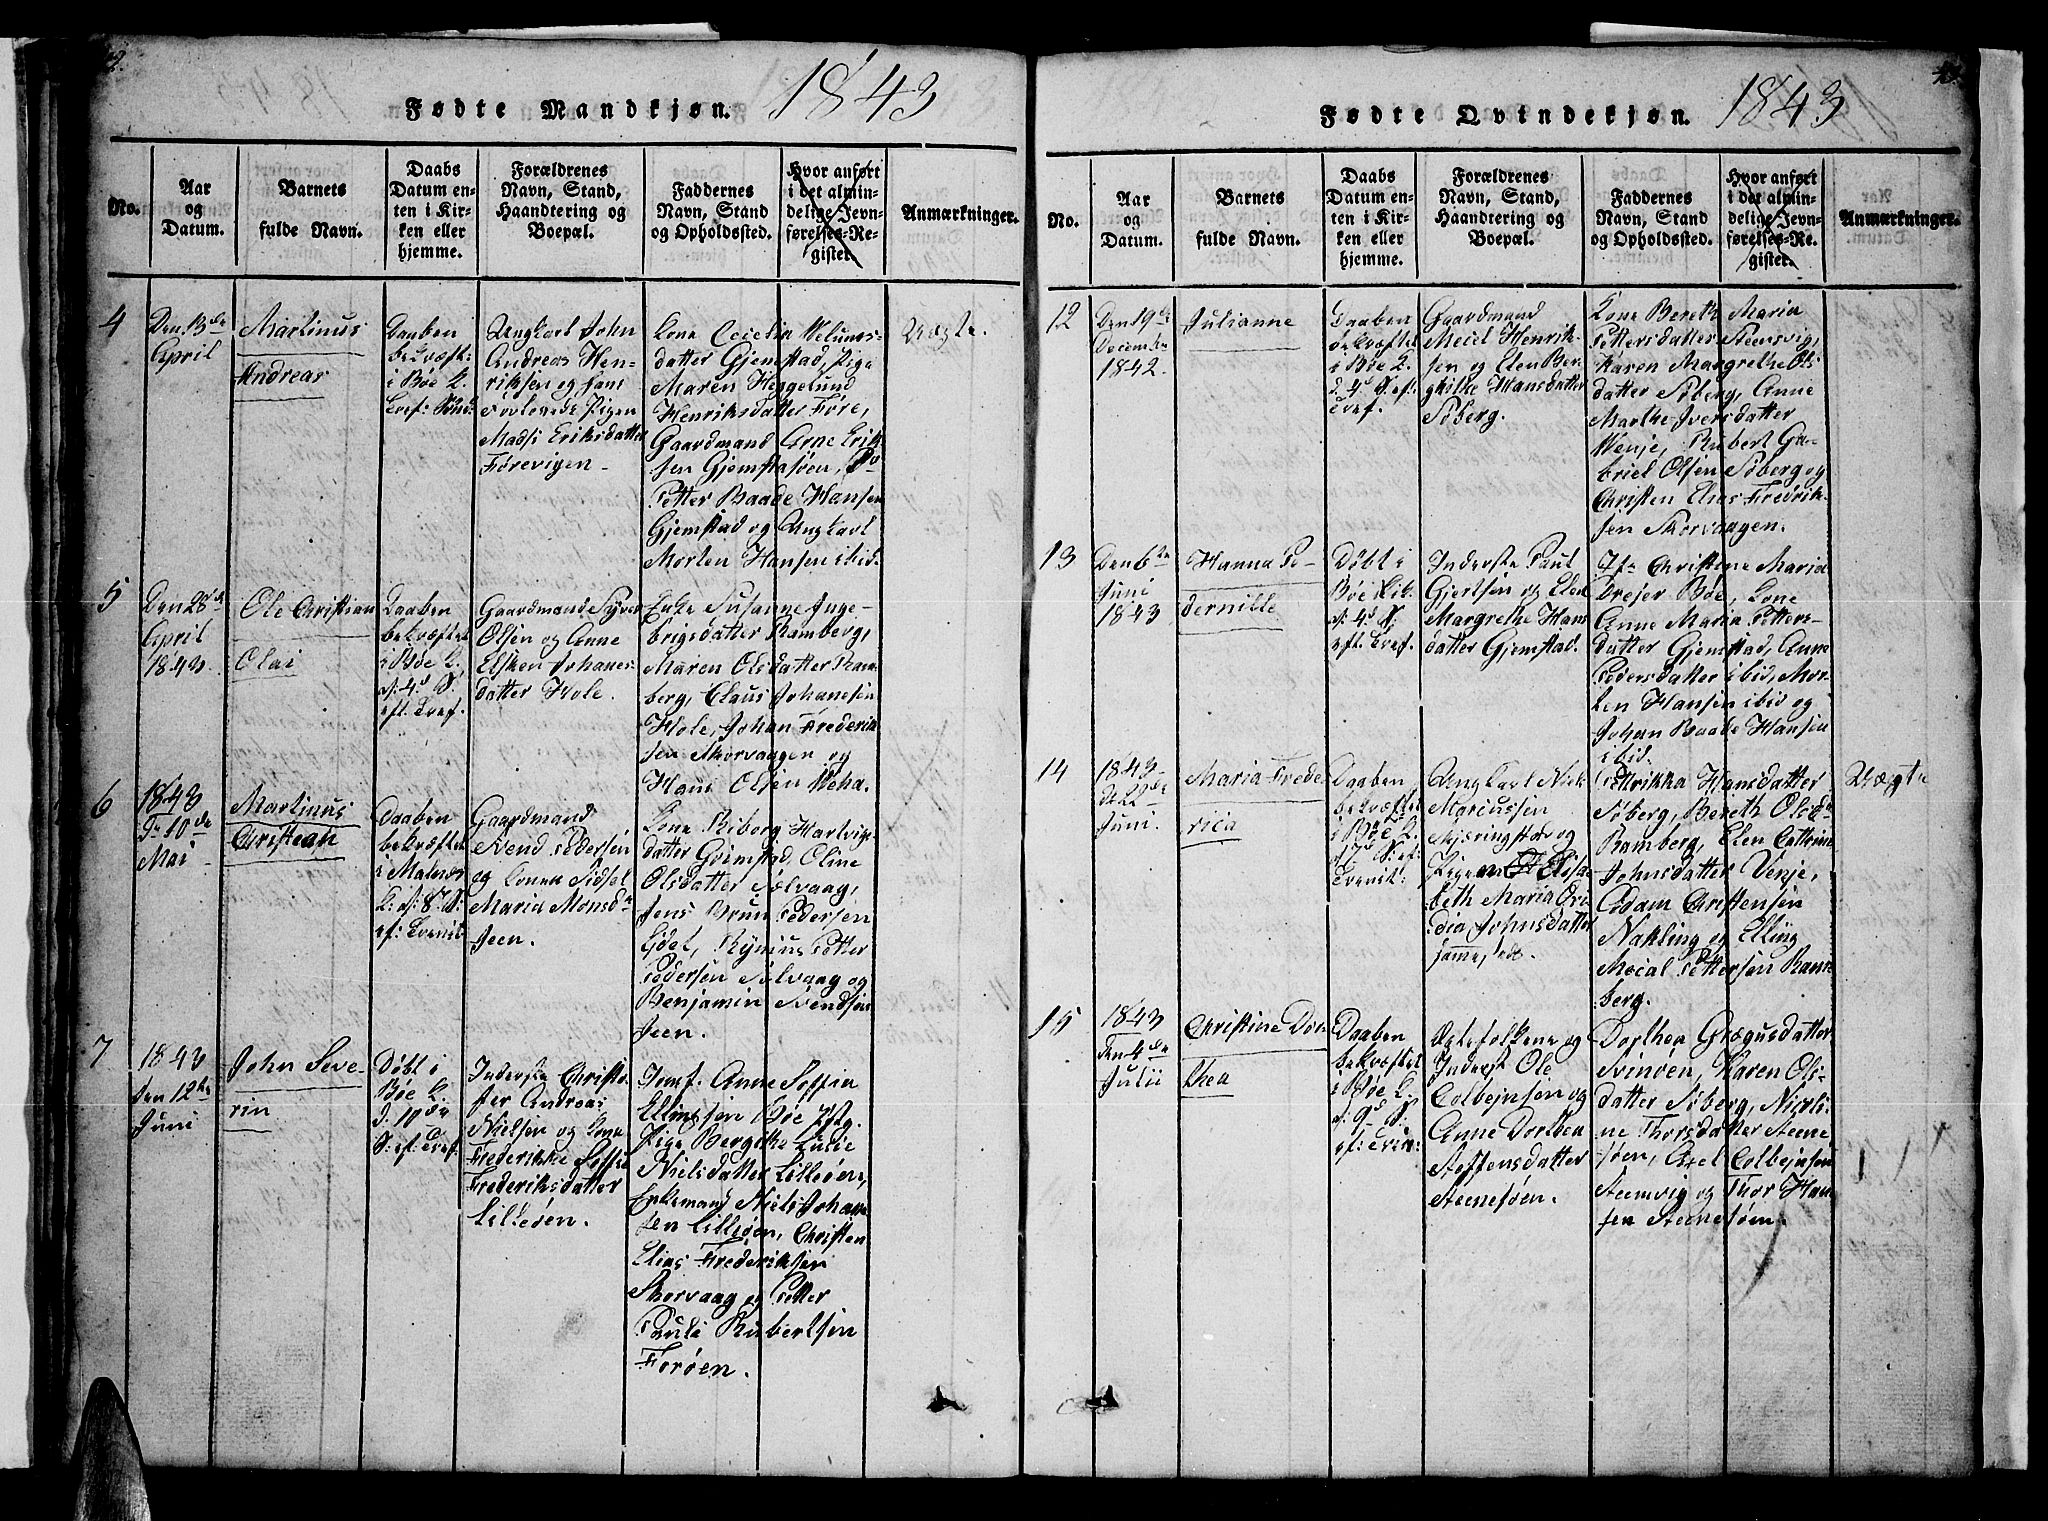 Fødte Mandkjøn. 1843
No.
Aar
og
Datum.
Barnets
fulde Navn.
Daabs
Datum en-
ten i Kir-
ken eller
hjemme.
Forældrenes
Navn, Stand,
Haandtering og
Boepæl.
Faddernes
Navn, Stand
og Opholdssted.
Hvor anført
i det almin-
delige Jevn-
førelses-Re-
gister.
Anmærkninger.
4
Den 13de
April
Martinus
Andreas
Daaben
bekræftet
i Bøe K.
Ungkarl John
Andreas Hen-
riksen og hans
trolovede Pigen
Madsi Eriksdatter
Førevigen
Kone Cecelia
datter Gjemstad, Pige
Maren Heggelund
Henriksdatter Føre,
Gaardmand Arne Erik
sen Gjemstasøen,
Petter Baade Hansen
Gjemstad og Ungkarl
Morten Hansen ibid.
Uægte.
5
Den 28de
April
1843.
Ole Christian
Olai
Daaben
bekræftet
i Bøe K.
d: 4d S.
eft. Tref.
Gaardmand Syver
Olsen og Anne
Elsken Johanes
datter Hole.
Enke Susanne Inge-
brigsdatter Ramberg,
Maren Olsdatter Ram
berg, Claus Johanesen
Hole, Johan Frederik
sen Skorvaagen og
Hans Olsen Veha.
6
1843
D. 10de
Mai
Martinus
Christean
Daaben
bekræftet
i Malnæs
K: d: 8d S:
ef: Trenit.
Gaardmand
Svend Pedersen
og Konen Sidsel
Maria Monsdr
Jeen.
Kone Riborg Hartvigs
datter Grimstad, Oline
Olsdatter Sølvaag,
Jens Brun Pedersen
Eidet, Rynius Petter
Pedersen Sølvaag og
Benjamin Svendsen
Jeen.
7
1843
den 12te
Juni
John Seve
rin
Døbt i
Bøe K.
d. 10de
S: ef: Tref.
Inderste Christo
fer Andreas
Nielsen og Kone
Frederikke Soffie
Frederiksdatter
Lilleøen.
Jomf. Anne Soffia
Ellingsen Bøe Pstg.
Pige Bergitha Lucie
Nielsdatter Lilleøen,
Enkemand Niels Johan
sen Lilleøen, Christen
Elias Frederiksen
Skorvaag og Petter
Pauli Rubertsen
Forøen.
Fødte Qvindekjøn. 1843
No.
Aar
og
Datum.
Barnets
fulde Navn.
Daabs
Datum en-
ten i Kir-
ken eller
hjemme.
Forældrenes
Navn, Stand,
Haandtering og
Boepæl.
Faddernes
Navn, Stand
og Opholdssted.
Hvor anført
i det almin-
delige Jevn-
førelses-Re-
gister.
Anmærkninger.
12
Den 19de
December
1842.
Julianne
Daaben
bekræftet
i Bøe K.
d. 4d S. ef:
Tref.
Gaardmand
Meiel Henrik-
sen og Elen Ber
githe Hansdatter
Søberg.
Kone Bereth Maria
Pettersdatter Steensvig,
Karen Margrethe Ols
datter Søberg, Anne
Marthe Iversdatter
Venje, Rubert Ga-
briel Olsen Søberg og
Christen Elias Fredrik-
sen Skorvaagen.
13
Den 6te
Juni
1843
Hanna Pe-
dernille
Døbt i
Bøe Kirk
d: 4d S:
eft. Tref.
Inderste Paul
Gjertsen og Elen
Margrethe Hans
datter Gjemstad.
Christine Maria
Drejer Bøe, Kone
Anne Maria Petters-
datter Gjemstad, Anne
Pedersdatter ibid, Mor-
ten Hansen ibid og
Johan Baade Hansen
ibid.
14
1843
de 22de
Juni.
Maria Frede
rica
Daaben
bekræftet
i Bøe K.
d 7d S. ef:
Trenit:
Ungkarl Niek
Marcussen
Skjæringstad og
Pigen Elisa
beth Maria Ovi
dia Johnsdatter
samme, sted.
Petrikka Hansdatter
Søberg, Bereth Olsdr
Ramberg, Elen Cathrine
Johnsdatter Venje,
Adam Christensen
Nakling og Elling
Meial Pettersen Ram
berg.
Uægte
15
1843
den 4de
Julii
Christine Dor
thea
Daaben
bekræftet
i Bøe K.
d: 9d S.
ef: Trin:
Ægtefolkene og
Inderst Ole
Colbejnsen og
Anne Dorthea
Steffensdatter
Steenesøen.
Dorthea Grægusdatter
Svinøen, Karen Ols-
datter Søberg, Nicoli-
ne Thorsdatter Steene
søen, Axel Colbejnsen
Steensvig og Thor Han
sen Steenesøen.